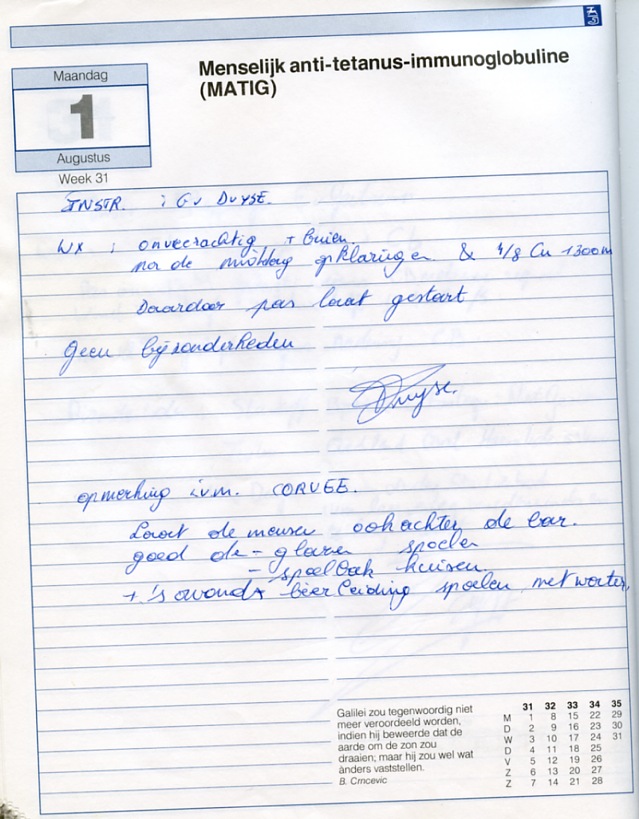 Menselijk anti-tetanus-immunoglobuline
(MATIG)
Maandag
1
Augustus
Week 31
INSTR. : G. DUYSE.
WX : onweerachtig + buien
na de middag opklaringen & 4/8 Cu 1300m
Daardoor pas laat gestart
Geen bijzonderheden
Duyse.
opmerking i.v.m. CORVEE.
Laat de mensen ook achter de bar.
goed de - glazen spoelen
- spoelbak kuisen.
+ 's avonds bierleiding spoelen met water.
Galilei zou tegenwoordig niet
meer veroordeeld worden,
indien hij beweerde dat de
aarde om de zon zou
draaien; maar hij zou wel wat
anders vaststellen.
B. Crncevic
31 32 33 34 35
M 1 8 15 22 29
D 2 9 16 23 30
W 3 10 17 24 31
D 4 11 18 25
V 5 12 19 26
Z 6 13 20 27
Z 7 14 21 28